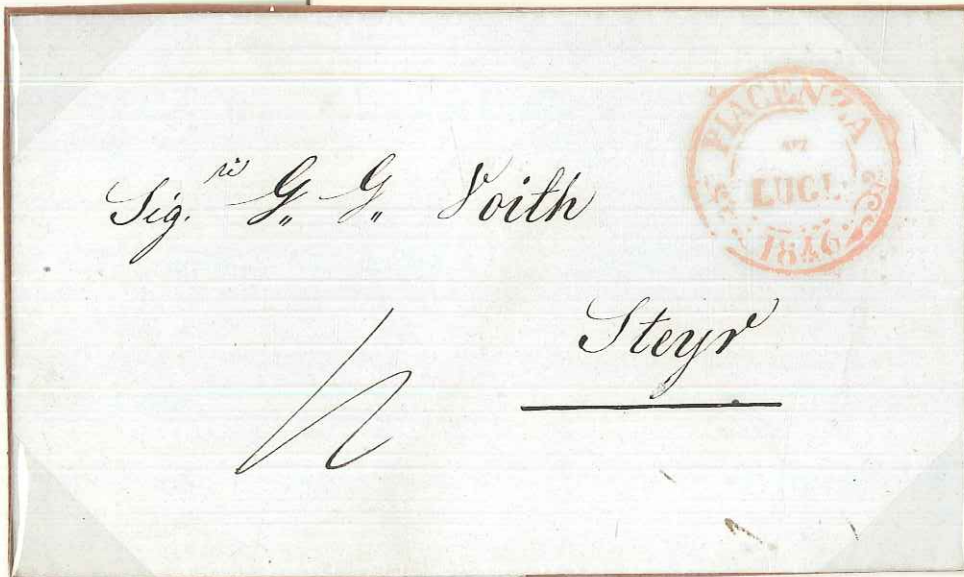 PIACENZA
LUGL.
1846
Sig.ri G. G. Voith
Steyr